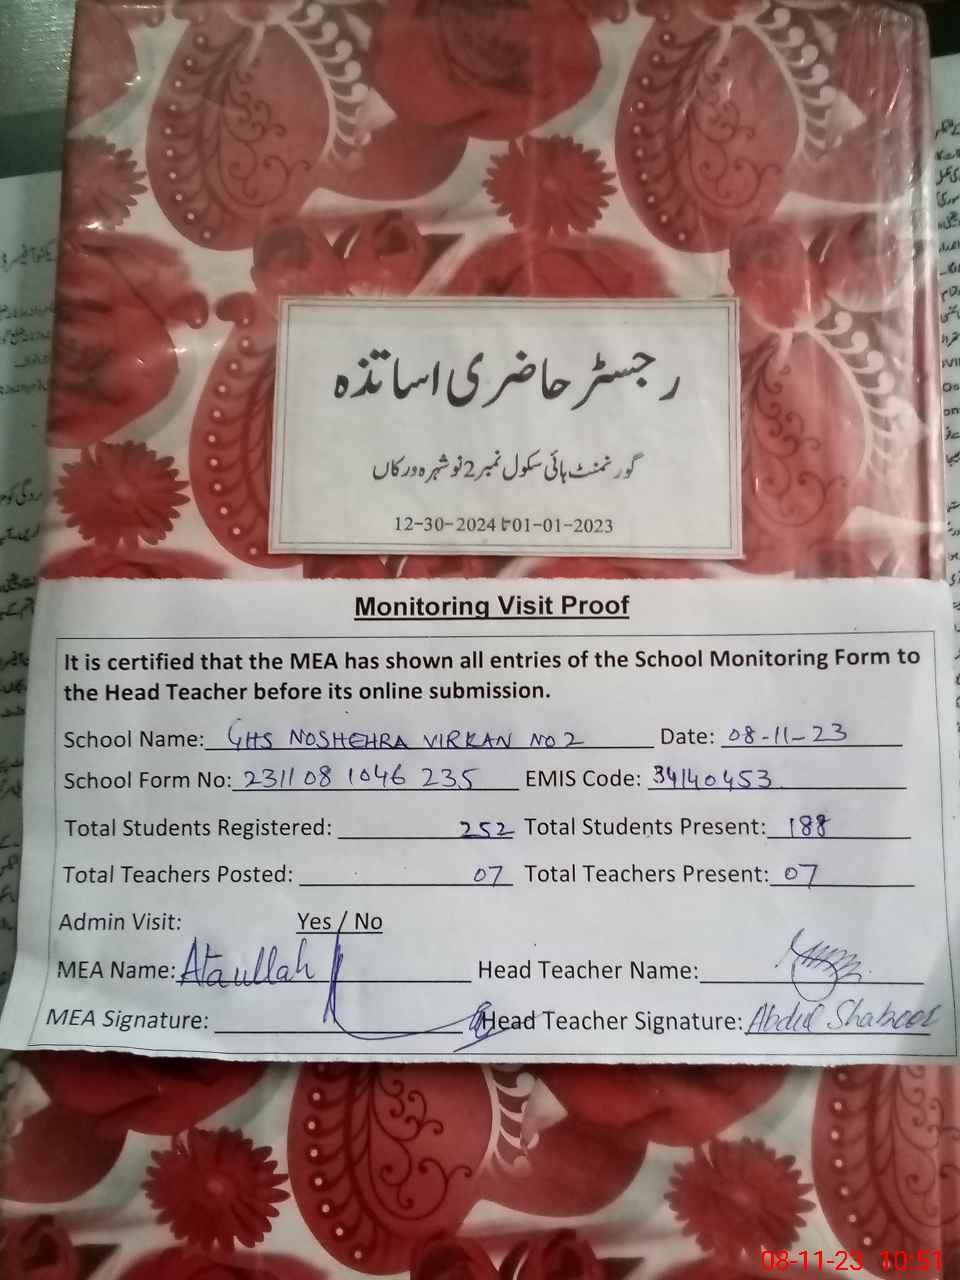 رجسٹر حاضری اساتذہ
گورنمنٹ ہائی سکول نمبر 2 نوشہرہ ورکاں
12-30-2024 تا 01-01-2023
Monitoring Visit Proof
It is certified that the MEA has shown all entries of the School Monitoring Form to
the Head Teacher before its online submission.
School Name: GHS NOSHEHRA VIRKAN NO 2 Date: 08-11-23
School Form No: 231108 1046 235 EMIS Code: 34140453
Total Students Registered: 252 Total Students Present: 188
Total Teachers Posted: 07 Total Teachers Present: 07
Admin Visit: Yes / No
MEA Name: Ataullah Head Teacher Name:
MEA Signature: Head Teacher Signature: Abdul Shakoor
08-11-23 10:51